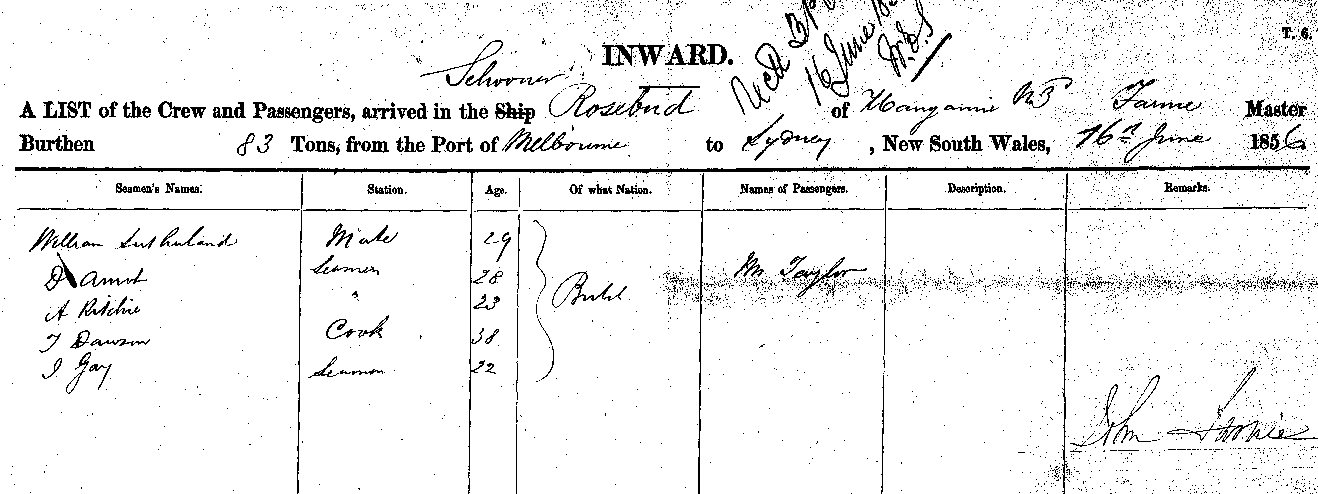 T. 6.
16 June
INWARD.
Schooner
A LIST of the Crew and Passengers, arrived in the Ship Rosebud of Master
Burthen 83 Tons, from the Port of Melbourne to Sydney, New South Wales, 16th June 1856
Seamen's Names. Station. Age. Of what Nation. Names of Passengers. Description. Remarks.
William Sutherland Mate 29
D Seamen 28 Mr Taylor
A Ritchie " 23
T Dawson Cook 38
J Gay Seaman 22
John